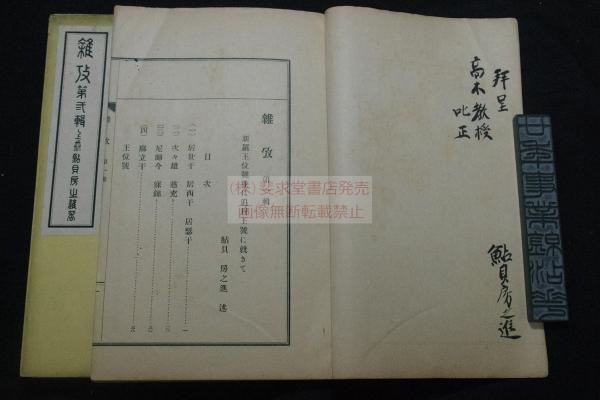 拜呈
高木敎授
叱正
鮎貝房之進
雜攷 第一輯
新羅王位號並に追封王號に就きて
鮎貝 房之進 述
目次
(一) 居世干 居西干 居瑟干
(二) 次々雄 慈充
(三) 尼師今 寐錦
(四) 麻立干
王位號
雜攷
雜攷 第弐輯
鮎貝房之進著
(株)斐求堂書店発売
画像無断転載禁止